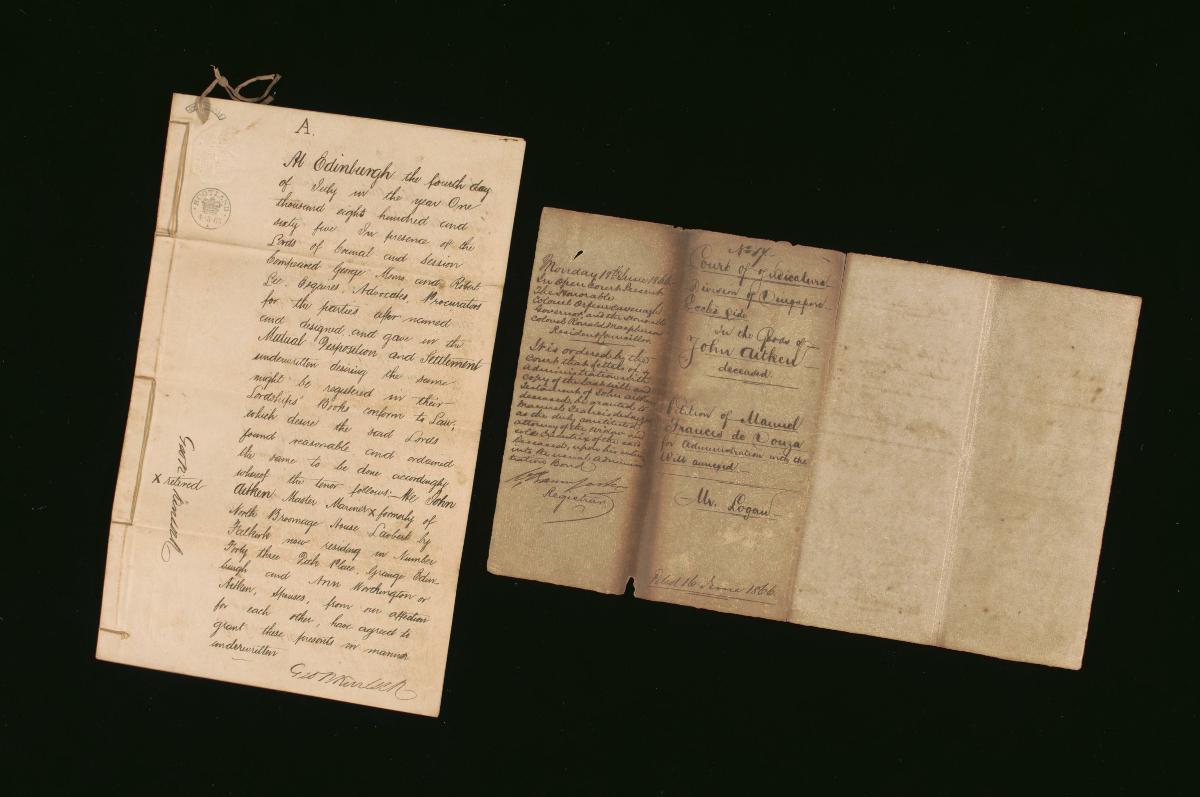 A.
At Edinburgh the fourth day
of July in the year One
thousand eight hundred and
sixty five In presence of the
Lords of Council and Session
Compeared George Monro and Robert
Lee Esquires, Advocates, Procurators
for the parties after named
and designed and gave in the
Mutual Disposition and Settlement
underwritten desiring the same
might be registered in their
Lordships' Books conform to Law,
which desire the said Lords
found reasonable and ordained
the same to be done accordingly
whereof the tenor follows:- We John
Aitken Master Mariner x formerly of
North Broomage House Larbert by
Falkirk now residing in Number
Forty three Park Place, Grange Edin-
burgh and Ann Worthington or
Aitken, Spouses, from our affection
for each other, have agreed to
grant these presents in manner
underwritten
x retired
SCOTLAND
No 84
Court of Judicature
Division of Singapore
Eccles side
In the Goods of
John Aitken
deceased
Petition of Manuel
Francis de Souza
for Administration with the
Will annexed
Mr. Logan
Filed 16 June 1866
Monday 18th June 1866
In Open Court Present
The Honorable
Colonel Orfeur Cavenagh
Governor, and the Honorable
Colonel Ronald Macpherson
Resident Councillor
It is ordered by the
Court that letters of
Administration with
copy of the last will and
Testament of John Aitken
deceased, be granted to
Manuel Francis de Souza
as the duly constituted
attorney of the widow and
Executrix of the said
deceased, upon his
into the usual Adminis
tration Bond
Registrar